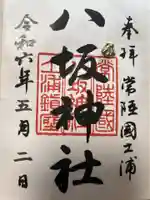 奉拝 常陸國土浦
八坂神社
令和六年五月二日